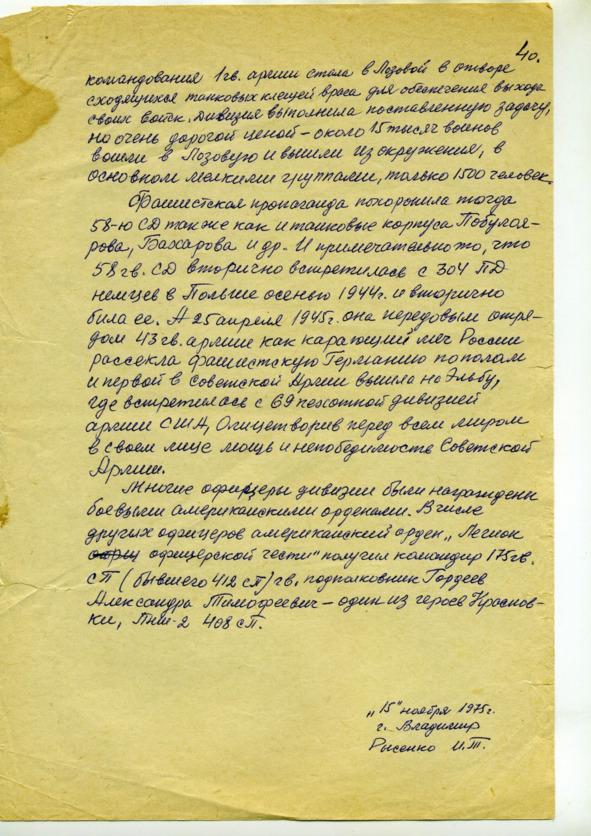 40.
командования 1гв. армии стала в Лозовой в створе
сходящихся танковых клещей врага для обеспечения выхода
своих войск. Дивизия выполнила поставленную задачу,
но очень дорогой ценой – около 15 тысяч воинов
вошли в Лозовую и вышли из окружения, в
основном мелкими группами, только 1500 человек.
Фашистская пропаганда похоронила тогда
58-ю СД также как и танковые корпуса Побулоя-
рова, Бахарова и др. И примечательно то, что
58 гв. СД вторично встретилась с 304 ПД
немцев в Польше осенью 1944г. и вторично
била ее. А 25 апреля 1945г. она передовым отря-
дом 43 гв. армии как карающий меч России
рассекла фашистскую Германию пополам
и первой в Советской Армии вышла на Эльбу,
где встретилась с 69 пехотной дивизией
армии США, Олицетворив перед всем миром
в своем лице мощь и непобедимость Советской
Армии.
Многие офицеры дивизии были награждены
боевыми американскими орденами. В числе
других офицеров американский орден „Легион
офицерской чести" получил командир 175 гв.
сп (бывшего 412 сп) гв. подполковник Гордеев
Александра Тимофеевич – один из героев Красnoв-
ки, ПНШ-2 408 сп.
„15" ноября 1975г.
г. Владимир
Рысенко И.Т.